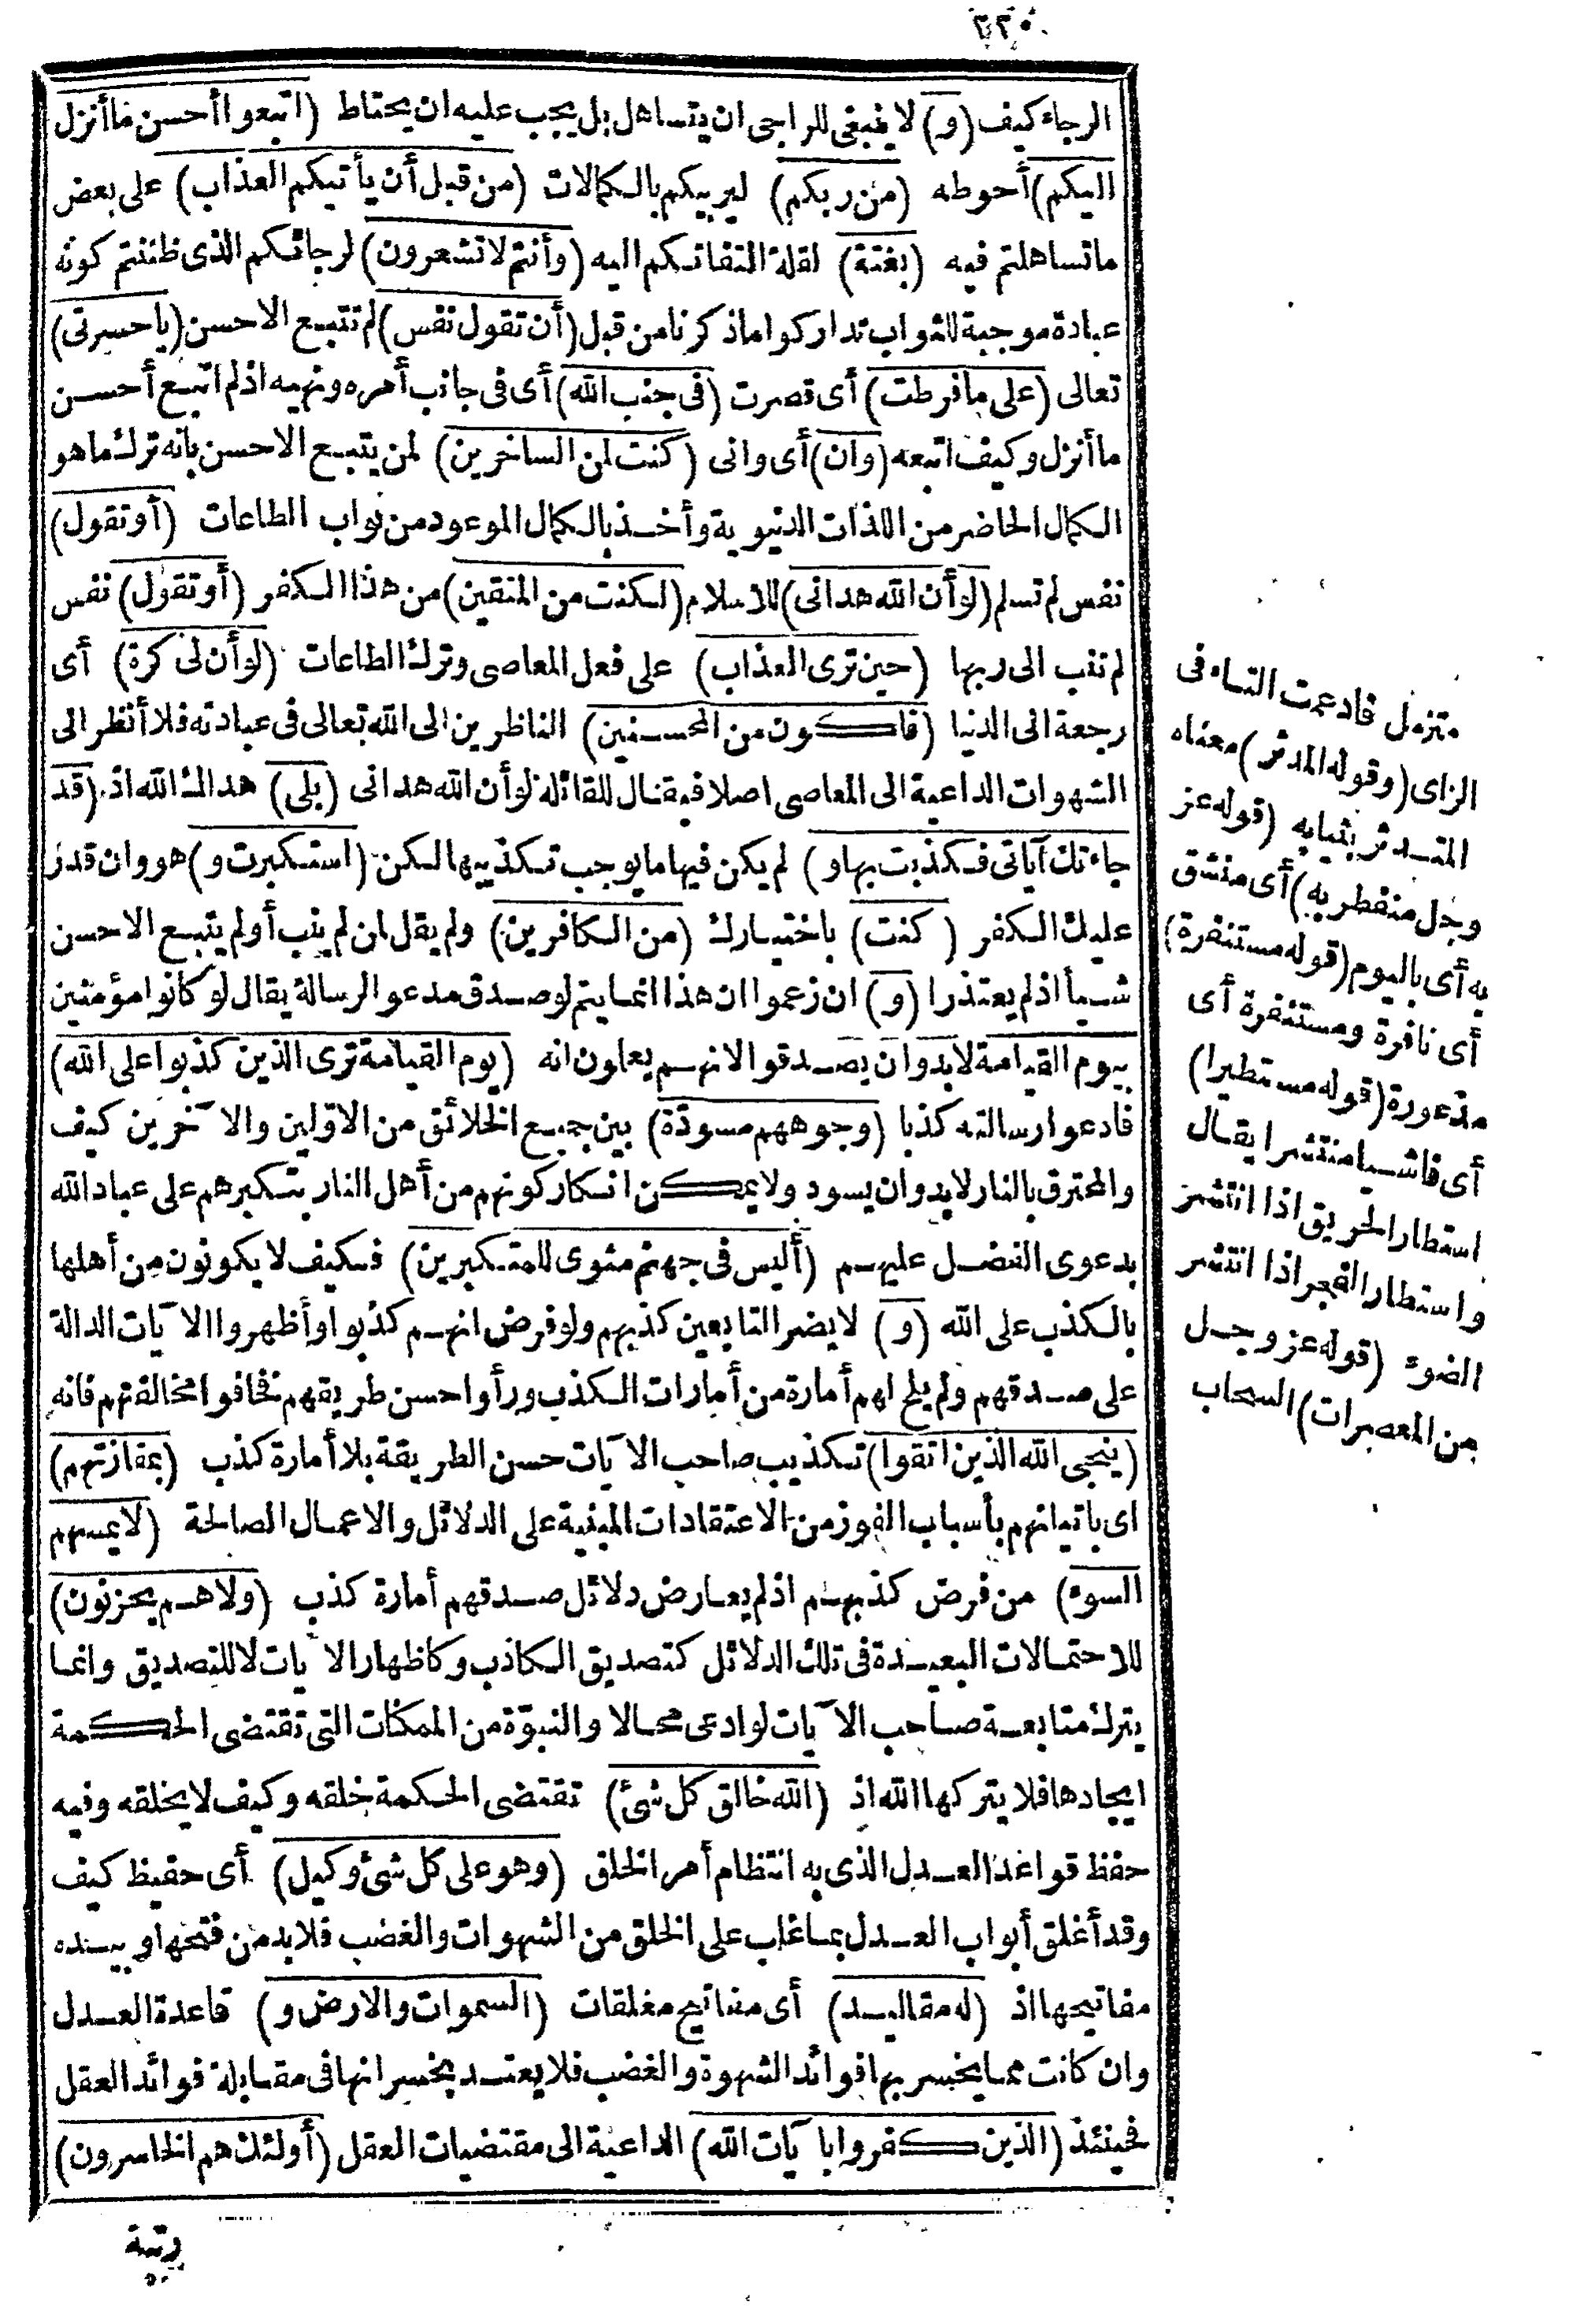 ٢٢٠
الرجاء كيف (و) لا ينبغى للراجى ان يتساهل بل يجب عليه ان يحتاط (اتبعوا أحسن ما أنزل
اليكم) أحوطه (من ربكم) ليربيكم بالكمالات (من قبل أن يأتيكم العذاب) على بعض
ما تساهلتم فيه (بغتة) لقلة التفاتكم اليه (وأنتم لا تشعرون) لرجائكم الذى ظننتم كونه
عبادة موجبة للثواب تداركوا ما ذكرنا من قبل (أن تقول نفس) لم تتبع الاحسن (يا حسرتى)
تعالى (على ما فرطت) أى قصرت (فى جنب الله) أى فى جانب أمره ونهيه اذ لم اتبع أحسن
ما أنزل وكيف اتبعه (وان) أى وانى (كنت لمن الساخرين) لمن يتبع الاحسن بانه ترك ما هو
الكمال الحاضر من اللذات الدنيوية وأخذ بالكمال الموعود من ثواب الطاعات (أو تقول)
نفس لم تسلم (لو أن الله هدانى) للاسلام (لكنت من المتقين) من هذا الكفر (أو تقول) نفس
لم تنب الى ربها (حين ترى العذاب) على فعل المعاصى وترك الطاعات (لو أن لى كرة) أى
رجعة الى الدنيا (فاكون من المحسنين) الناظرين الى الله تعالى فى عبادته فلا أنظر الى
الشهوات الداعية الى المعاصى اصلا فيقال للقائلة لو أن الله هدانى (بلى) هداك الله اذ (قد
جاءتك آياتى فكذبت بها و) لم يكن فيها ما يوجب تكذيبها لكن (استكبرت و) هو وان قدر
عليك الكفر (كنت) باختيارك (من الكافرين) ولم يقل لمن لم ينب أو لم يتبع الاحسن
شيأ اذ لم يعتذرا (و) ان زعموا ان هذا انما يتم لو صدق مدعو الرسالة يقال لو كانوا مؤمنين
بيوم القيامة لا بد وان يصدقوا لانهم يعلون انه (يوم القيامة ترى الذين كذبوا على الله)
فادعوا رسالته كذبا (وجوههم مسودّة) بين جميع الخلائق من الاوّلين والآخرين كيف
والمحترق بالنار لا بد وان يسود ولا يمكن انكار كونهم من أهل النار بتكبرهم على عباد الله
بدعوى الفضل عليهم (أليس فى جهنم مثوى للمتكبرين) فكيف لا يكونون من أهلها
بالكذب على الله (و) لا يضر التابعين كذبهم ولو فرض انهم كذبوا وأظهروا الآيات الدالة
على صدقهم ولم يلح لهم أمارة من أمارات الكذب ورأوا حسن طريقهم فخافوا مخالفتهم فانه
(ينجى الله الذين اتقوا) تكذيب صاحب الآيات حسن الطريقة بلا أمارة كذب (بمفازتهم)
اى باتيانهم بأسباب الفوز من الاعتقادات المبنية على الدلائل والاعمال الصالحة (لا يمسهم
السوء) من فرض كذبهم اذ لم يعارض دلائل صدقهم أمارة كذب (ولا هم يحزنون)
للاحتمالات البعيدة فى تلك الدلائل كتصديق الكاذب وكاظهار الآيات لا للتصديق وانما
يترك متابعة صاحب الآيات لو ادعى محالا والنبوّة من الممكنات التى تقتضى الحكمة
ايجادها فلا يتركها الله اذ (الله خالق كل شئ) تقتضى الحكمة خلقه وكيف لا يخلقه وفيه
حفظ قواعد العدل الذى به انتظام أمر الخلق (وهو على كل شئ وكيل) أى حفيظ كيف
وقد أغلق أبواب العدل بما غلب على الخلق من الشهوات والغضب فلا بد من فتحها وبيده
مفاتيحها اذ (له مقاليد) أى مفاتيح مغلقات (السموات والارض و) قاعدة العدل
وان كانت مما يخسر بها فوائد الشهوة والغضب فلا يعتد بخسرانها فى مقابلة فوائد العقل
فحينئذ (الذين كفروا بآيات الله) الداعية الى مقتضيات العقل (أولئك هم الخاسرون)
متزمل فادغمت التاء فى
الزاى (وقوله المدثر) معناه
المتدثر بثيابه (قوله عز
وجل منفطر به) أى منشق
به أى باليوم (قوله مستنفرة)
أى نافرة ومستنفرة أى
مذعورة (قوله مستطيرا)
أى فاشيا منتشرا يقال
استطار الحريق اذا انتشر
واستطار الفجر اذا انتشر
الضوء (قوله عز وجل
من المعصرات) السحاب